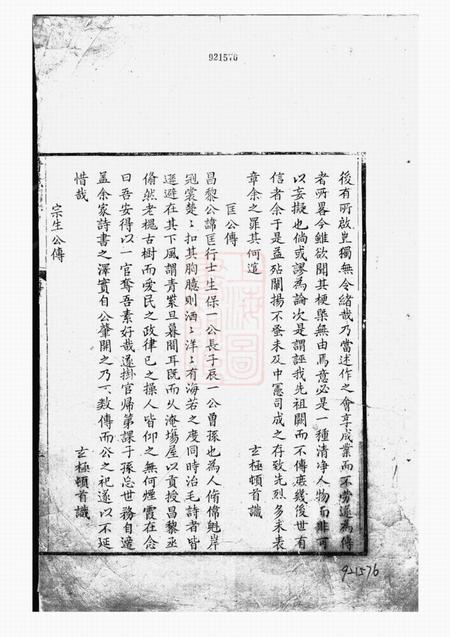 921576
後有所啟豈獨無令緒哉乃當述作之會享成業而不勞遂為傳
者所畧今雖欲開其梗槩無由焉意必是一種清凈人物而非可
以妄擬也倘或謬為論次是謂誣我先祖闕而不傳庶幾後世有
信者余于是益殆闡揚不蚤未及中憲司成之存致先烈多未表
章余之罪其何逭
玄極頓首識
匡公傳
昌黎公諱匡行五生保一公長子辰一公曾孫也為人脩偉魁岸
冠裳楚楚扣其胸臆則洒洒洋洋有海若之度同時治毛詩者皆
遜避在其下風謂青業旦暮間耳既而久淹塲屋以貢授昌黎丞
翛然老槐古樹而愛民之政律已之操人皆仰之無何煙霞在念
曰吾安得以一官奪吾素好哉遂掛官帰第課子孫忘世務自適
蓋余家詩書之澤實自公肇開之乃一数傳而公之祀遂以不延
惜哉
玄極頓首識
宗生公傳
921576